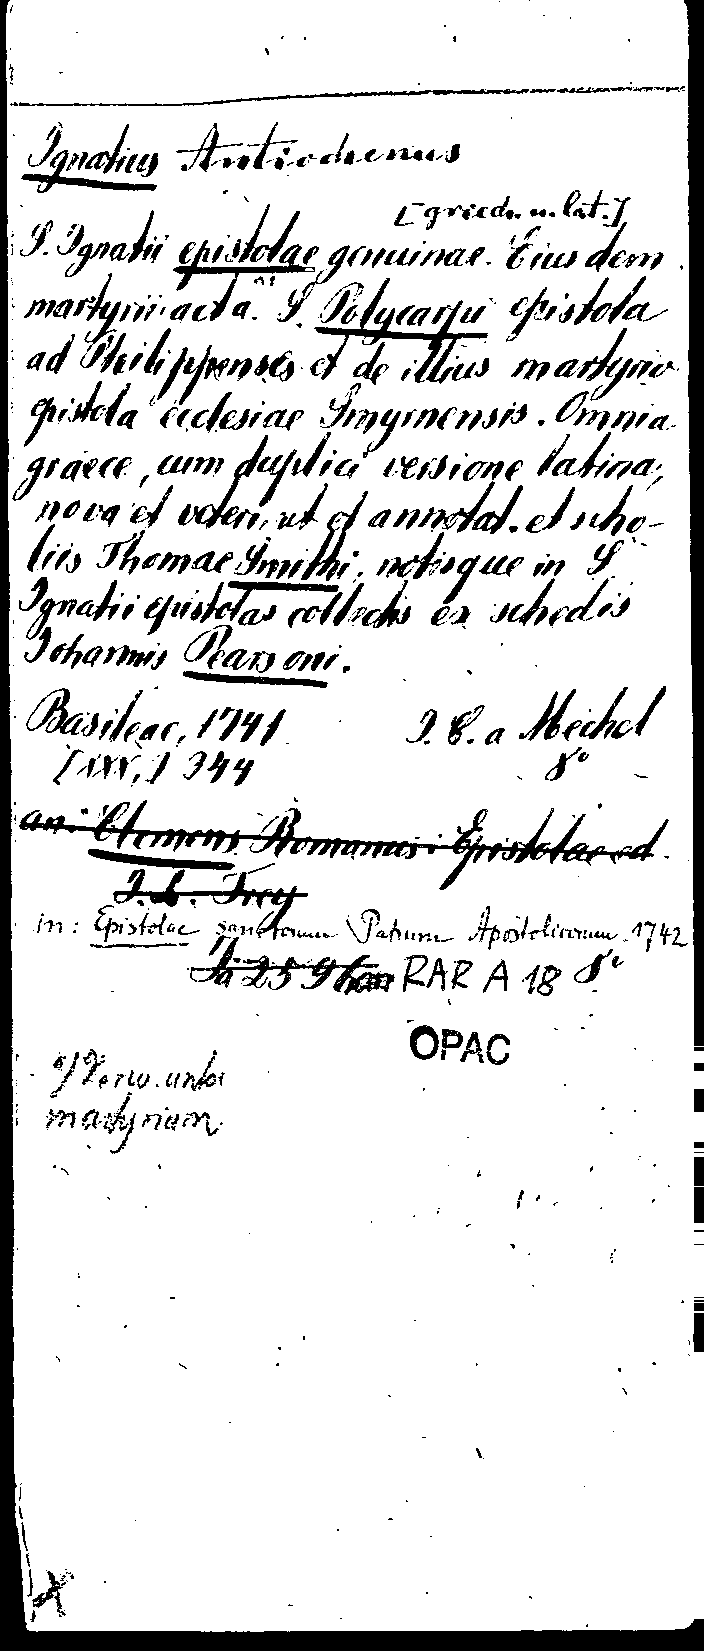 Ignatius Antiochenus
[griech. u. lat.]
S. Ignatii epistolae genuinae. Eiusdem
martyrii acta. S. Polycarpi epistola
ad Philippenses et de illius martyrio
epistola ecclesiae Smyrnensis. Omnia
graece, cum duplici versione latina,
nova et veteri, ut et annotat. et scho-
liis Thomae Smithi, notisque in S
Ignatii epistolas collectis ex schedis
Iohannis Pearsoni.
Basileae, 1741 I. C. a Mechel
[XXX,] 344 8°
an: Clemens Romanus: Epistolae ed
I. L. Frey
in: Epistolae sanctorum Patrum Apostolicorum. 1742
25 RAR A 18 8°
OPAC
Verw. unter
martyrium